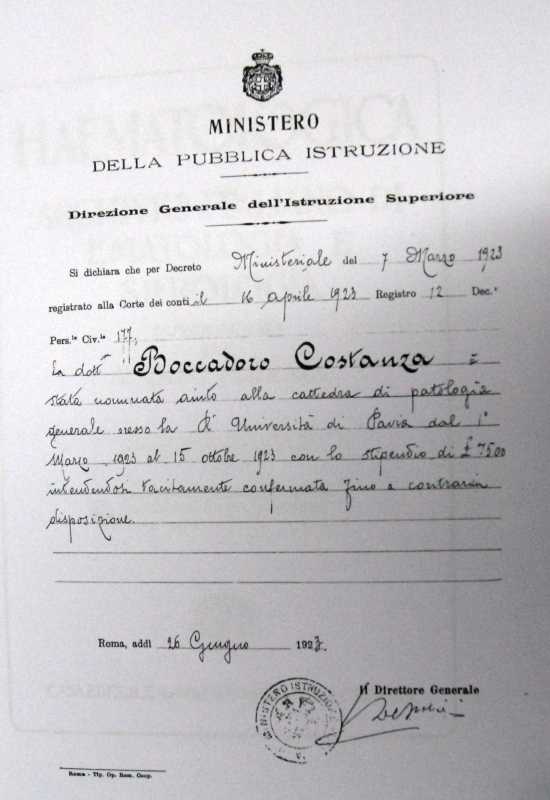 MINISTERO
DELLA PUBBLICA ISTRUZIONE
Direzione Generale dell'Istruzione Superiore
Si dichiara che per Decreto Ministeriale del 7 Marzo 1923
registrato alla Corte dei conti il 16 aprile 1923 Registro 12 Dec.
Pers.le Civ.le 177,
La dott Boccadoro Costanza è
stata nominata aiuto alla cattedra di patologia
generale presso la R Università di Pavia dal 1°
Marzo 1923 al 15 ottobre 1923 con lo stipendio di £ 7500
intendendosi tacitamente confermata fino a contraria
disposizione.
Roma, addì 26 Giugno 1923.
Il Direttore Generale
MINISTERO ISTRUZIONE
Roma - Tip. Op. Rom. Coop.